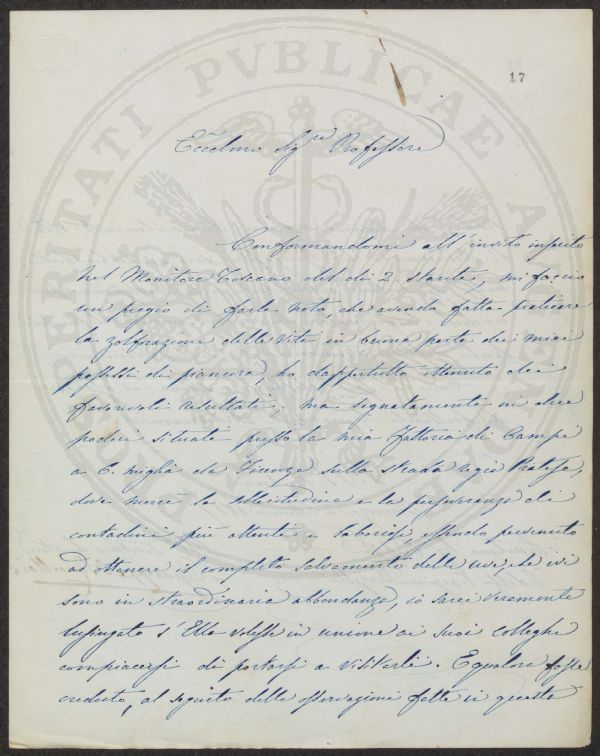 17
Eccelmo Sigre Professore
Conformandomi all'invito inserito
nel Monitore Toscano del dì 2 stante, mi faccio
un pregio di farle noto, che avendo fatta praticare
la zolforazione delle viti in buona parte dei miei
possessi di pianura, ho dappertutto ottenuto dei
favorevoli resultati; ma segnatamente in due
poderi situati presso la mia fattoria di Campi
a 6. miglia da Firenze sulla strada regia Pratese,
dove mercè la sollecitudine e la perseveranza di
contadini più attenti e laboriosi, essendo pervenuto
ad ottenere il completo salvamento delle uve, che ivi
sono in straordinaria abbondanza, io sarei veramente
lusingato s'Ella volesse in unione ai suoi colleghi
compiacersi di portarsi a visitarli. E qualora fosse
creduto, al seguito delle osservazione fatte in queste
PROSPERITATI PVBLICAE AVGENDAE